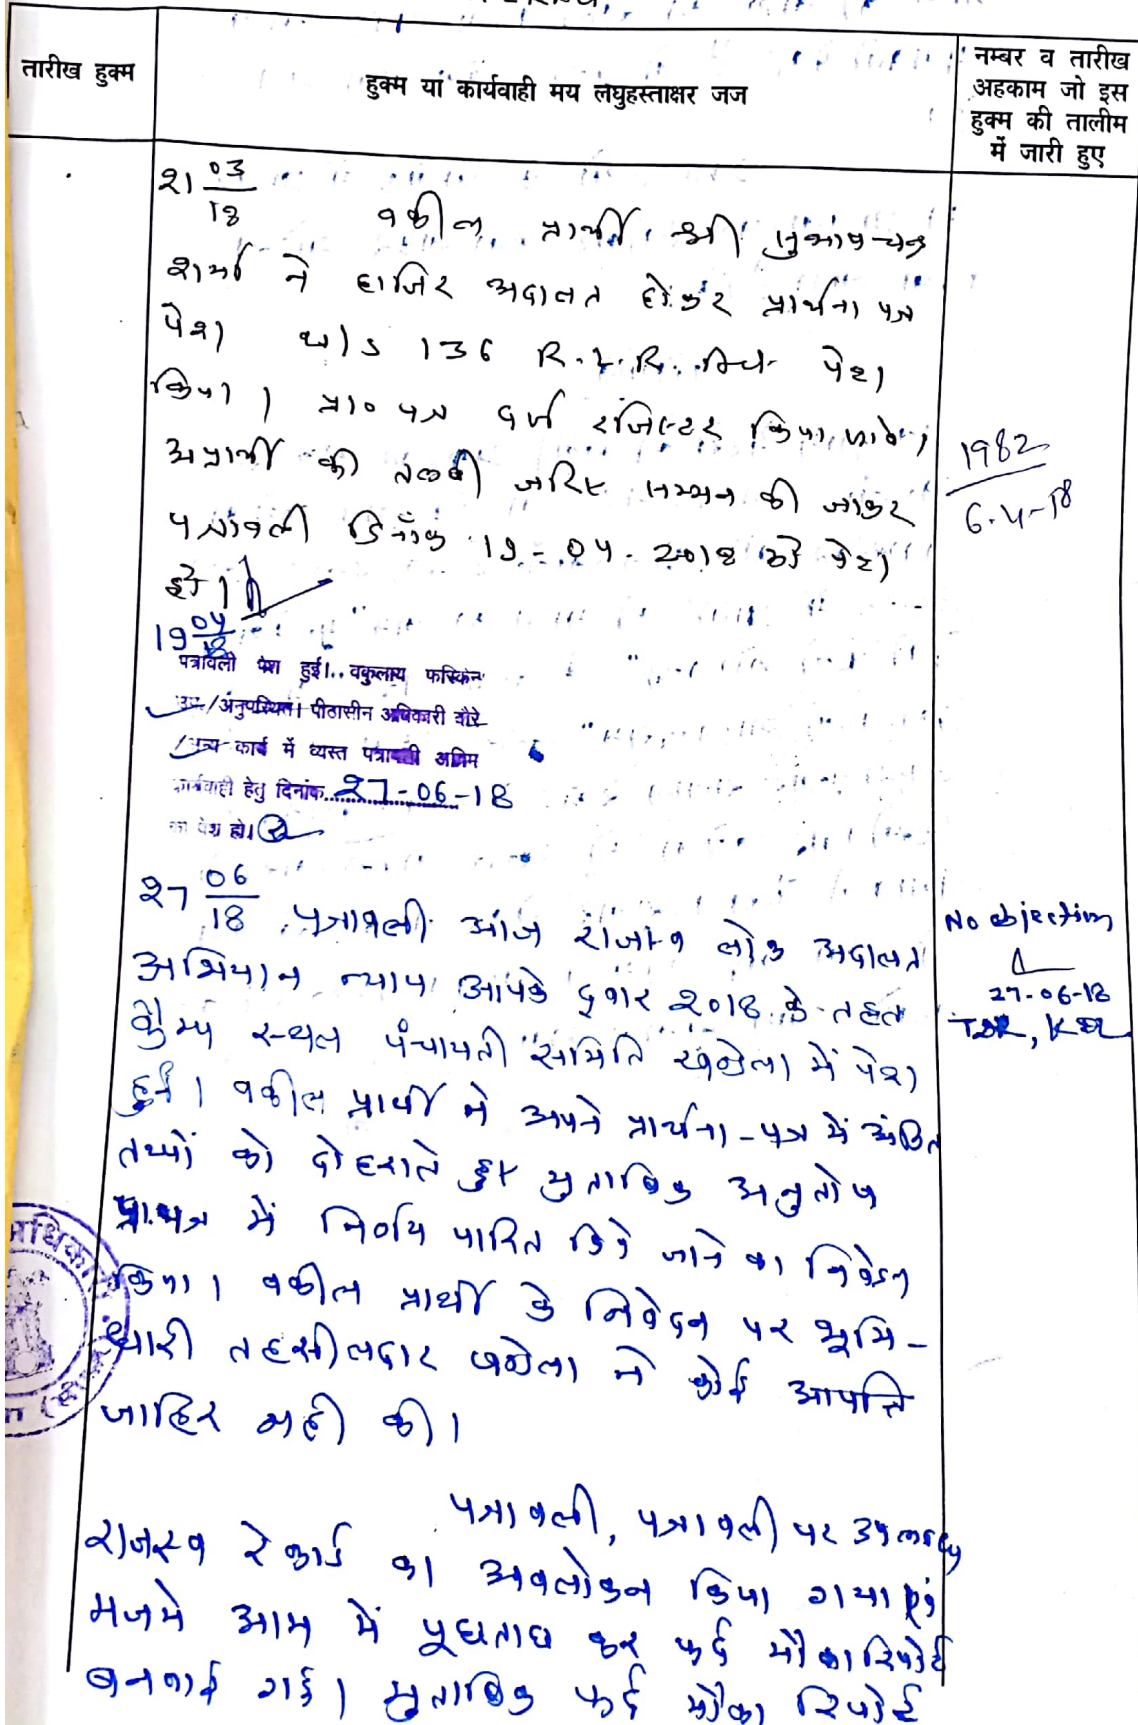 तारीख हुक्म
हुक्म या कार्यवाही मय लघुहस्ताक्षर जज
नम्बर व तारीख
अहकाम जो इस
हुक्म की तालीम
में जारी हुए
21 03/18 वकील प्रार्थी श्री सुभाषचन्द्र
शर्मा ने हाजिर अदालत होकर प्रार्थना पत्र
पेश u/s 136 R.L.R. पेश
किया। प्रा० पत्र दर्ज रजिस्टर किया जावे,
अप्रार्थी की तलबी जरिए सम्मन की जाकर
पत्रावली दिनाँक 19-04-2018 को पेश
हो।
1982
6-4-18
19 04/18
पत्रावली पेश हुई। वकुलाय फरिकेन
उप./अनुपस्थित। पीठासीन अधिकारी दौरे
/अन्य कार्य में व्यस्त पत्रावली अग्रिम
कार्यवाही हेतु दिनांक 27-06-18
को पेश हो।
27 06/18 पत्रावली आज राजस्व लोक अदालत
अभियान न्याय आपके द्वार 2018 के तहत
कैम्प स्थल पंचायती समिति खण्डेला में पेश
हुई। वकील प्रार्थी ने अपने प्रार्थना-पत्र में अंकित
तथ्यों को दोहराते हुए मुताबिक अनुतोष
प्रा.पत्र में निर्णय पारित किये जाने का निवेदन
किया। वकील प्रार्थी के निवेदन पर भूमि-
धारी तहसीलदार खण्डेला ने कोई आपत्ति
जाहिर नही की।
No objection
27-06-18
TDR, KDL
पत्रावली, पत्रावली पर उपलब्ध
राजस्व रेकार्ड का अवलोकन किया गया एवं
मजमे आम में पूछताछ कर फर्द मौका रिपोर्ट
बनवाई गई। मुताबिक फर्द मौका रिपोर्ट